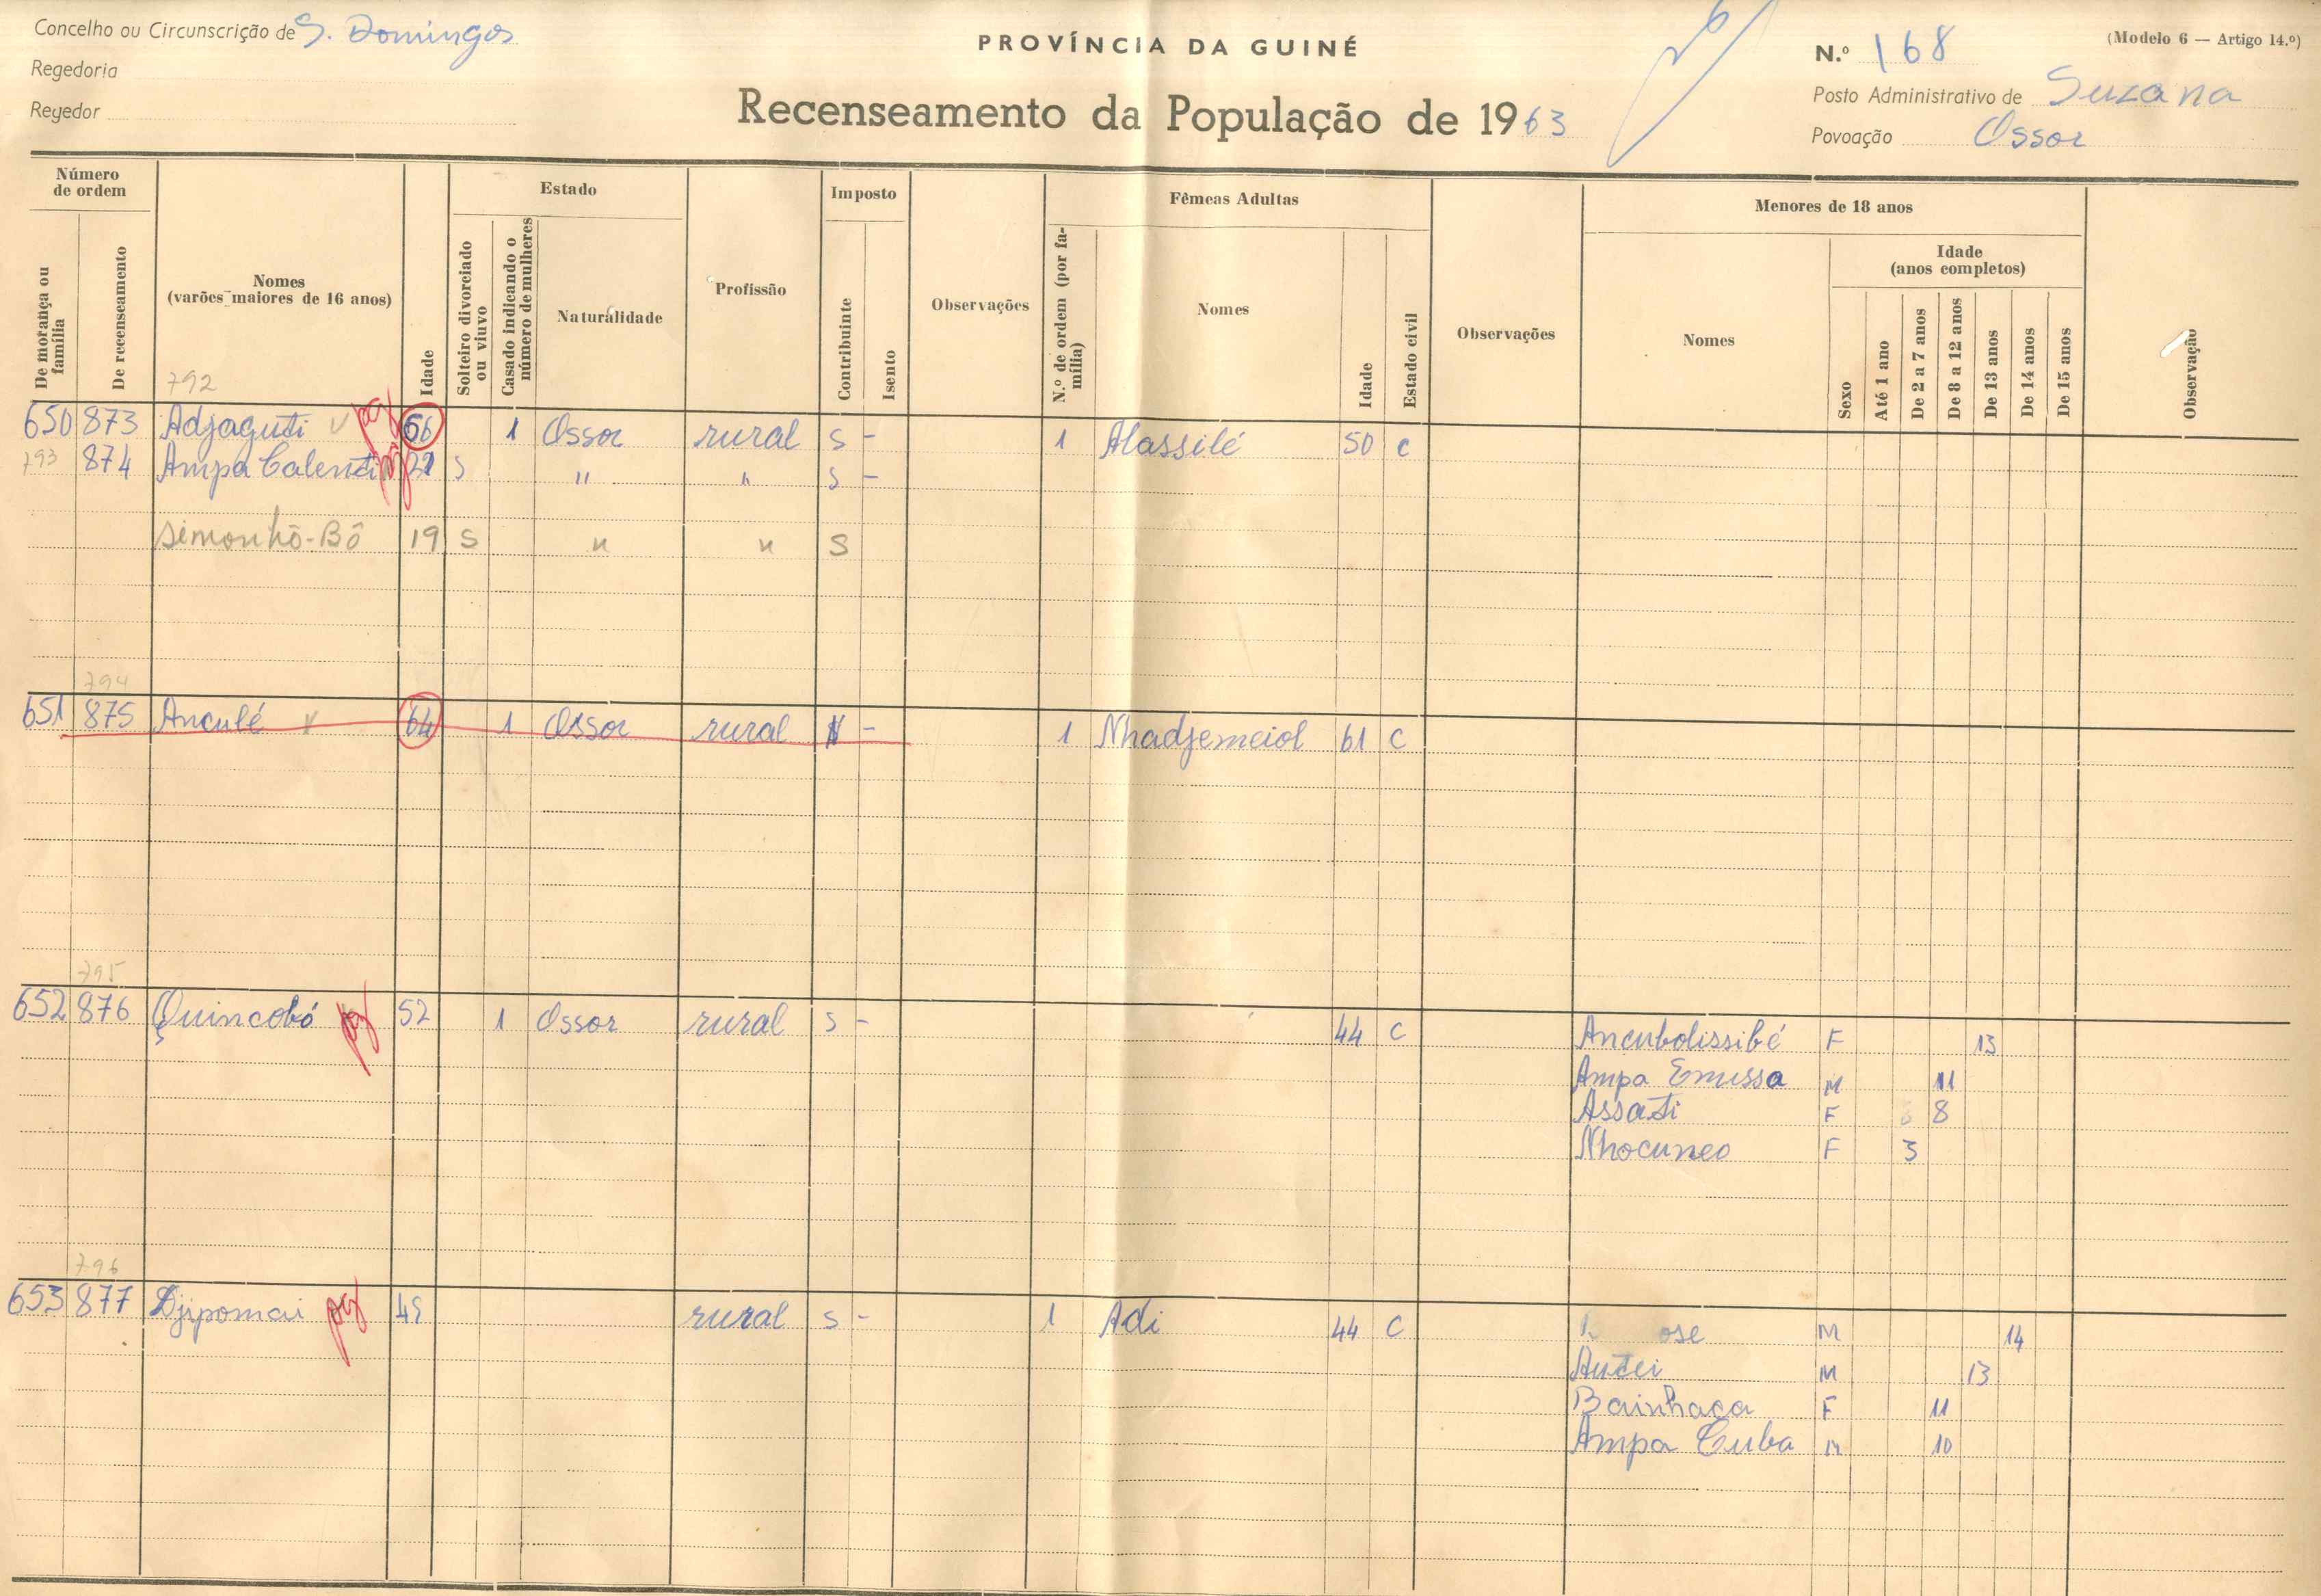 Concelho ou Circunscrição de S. Domingos
Regedoria
Regedor
PROVÍNCIA DA GUINÉ
Recenseamento da População de 1963
(Modelo 6 — Artigo 14.º)
N.º 168
Posto Administrativo de Suzana
Povoação Ossor
Número de ordem
De morança ou família
De recenseamento
Nomes (varões maiores de 16 anos)
Idade
Estado
Solteiro divorciado ou viuvo
Casado indicando o número de mulheres
Naturalidade
Profissão
Imposto
Contribuinte
Isento
Observações
Fêmeas Adultas
N.º de ordem (por família)
Nomes
Idade
Estado civil
Observações
Menores de 18 anos
Nomes
Sexo
Idade (anos completos)
Até 1 ano
De 2 a 7 anos
De 8 a 12 anos
De 13 anos
De 14 anos
De 15 anos
Observação
792
650 873 Adjaguti pg 56 1 Ossor rural S - 1 Alassilé 50 C
793 874 Ampa Calenti pg S " " S -
Simonhô-Bô 19 S " " S
794
651 875 Anculé 64 1 Ossor rural - 1 Nhadjemeiol 61 C
795
652 876 Quincobó pg 52 1 Ossor rural S - 44 C Ancubolissibé F 13
Ampa Emussa M 11
Assati F 8
Nhocuneo F 3
796
653 877 Djipomai pg 49 rural S - 1 Adi 44 C ose M 14
Autei M 13
Bainhaca F 11
Ampa Cuba M 10